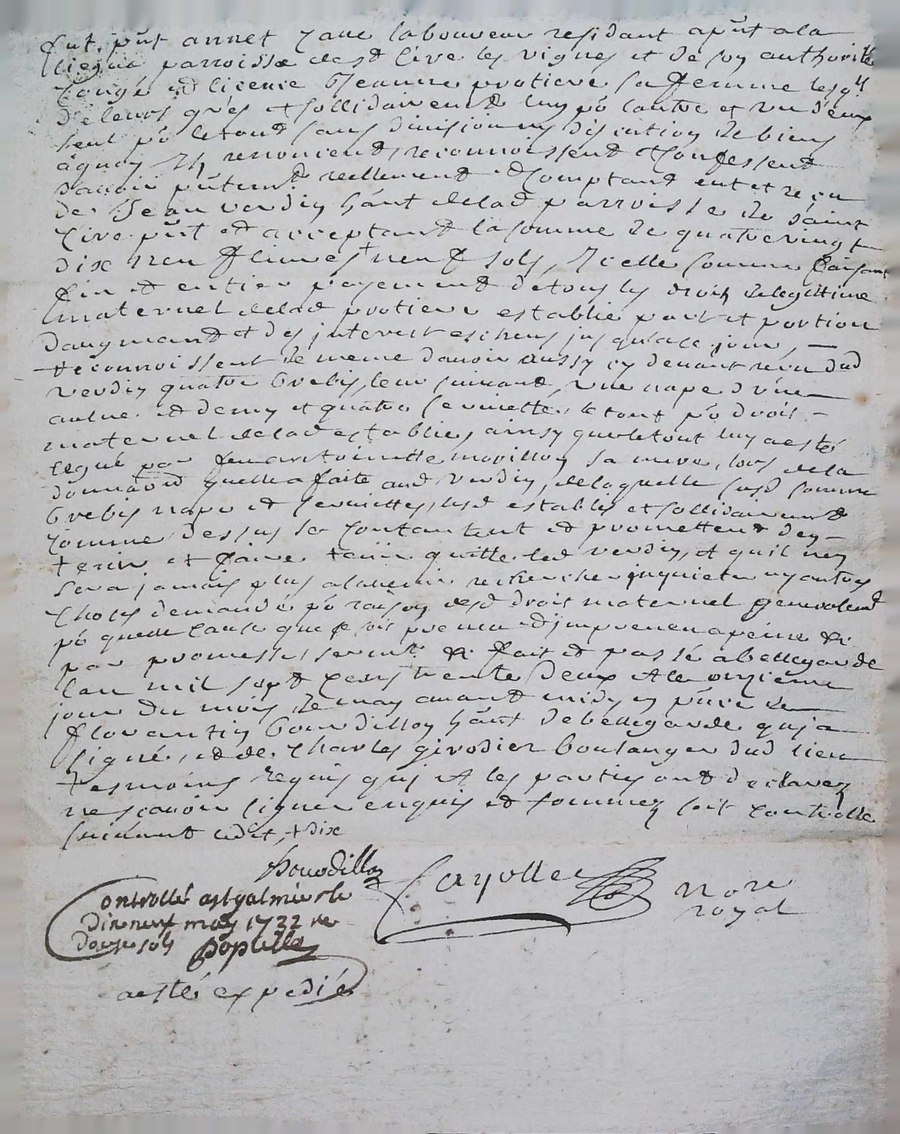 fut pñt annet Jane laboureur residant apñt ala
parroisse desd Cive les vignes et de son authorité
Congé et licence Jeanne protiere sa femme lesqls
de leurs grés et sollidairement lun pö lautre et un deux
seul pö le tout sans division ny discution de biens
aquoy ils renoncent, reconnoissent et confessent
davoir pñtemt reellement et comptant eut et reçu
de Jean verdiy hãnt delad parroisse de saint
Cive pñt et acceptant la somme de quatre vingt
dix neuf livres neuf sols, Icelle somme faisant
fin et entier payement de tous les droits de legitime
maternel delad protiere establie part et portion
daugmand et des interest escheus jusqua ce jour,
reconnoissent de meme davoir aussy cy devant reçu dud
verdiy quatre brebis, leur suivant, une nape dune
aulne et demy et quatre serviettes le tout pö drois
maternel delad establie, ainsy que le tout luy a esté
legué par feue antoinette morillon sa mere, lors de la
donnaõn quelle a faite aud verdiy, de laquelle susd somme
brebis nape et serviettes, lesd establis et sollidairemt
comme dessus se contantent et promettent den
tenir et faire tenir quitte led verdiy, et quil ny
sera jamais plus alavenir recherché inquieté ny autres
choses demandé pö raison desd drois maternel generalemt
pö quelle cause que ce soit peine &c
par promesses sermt &c fait et passé a bellegarde
lan mil sept cents trente deux et le onzieme
jour du mois de may avant midy en pñce de
florentiy bourdillon hãnt de bellegarde qui a
signé, et de Charles girodier boulanger dud lieu
tesmoins requis qui et les parties ont declarez
ne scavoir signer enquis et sommez soit controllé
suivant ledit, + dix
bourdillon
Cayolle
Nore
royal
Controllé a st galmier le
dix neuf may 1732 re
douze sols
a esté expedié